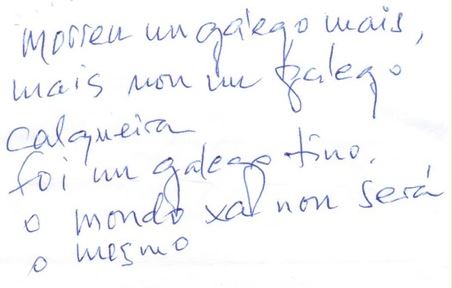 Morreu un galego mais,
mais non un galego
calqueira
foi un galego fino.
o mondo xa non será
o mesmo